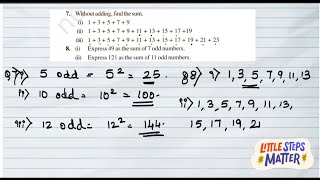 7. Without adding, find the sum.
(i) 1 + 3 + 5 + 7 + 9
(ii) 1 + 3 + 5 + 7 + 9 + 11 + 13 + 15 + 17 + 19
(iii) 1 + 3 + 5 + 7 + 9 + 11 + 13 + 15 + 17 + 19 + 21 + 23
8. (i) Express 49 as the sum of 7 odd numbers.
(ii) Express 121 as the sum of 11 odd numbers.
5 odd = 5² = 25.
ii) 10 odd = 10² = 100.
iii) 12 odd = 12² = 144.
Q8 i) 1, 3, 5, 7, 9, 11, 13
ii) 1, 3, 5, 7, 9, 11, 13,
15, 17, 19, 21
LITTLE STEPS
MATTER